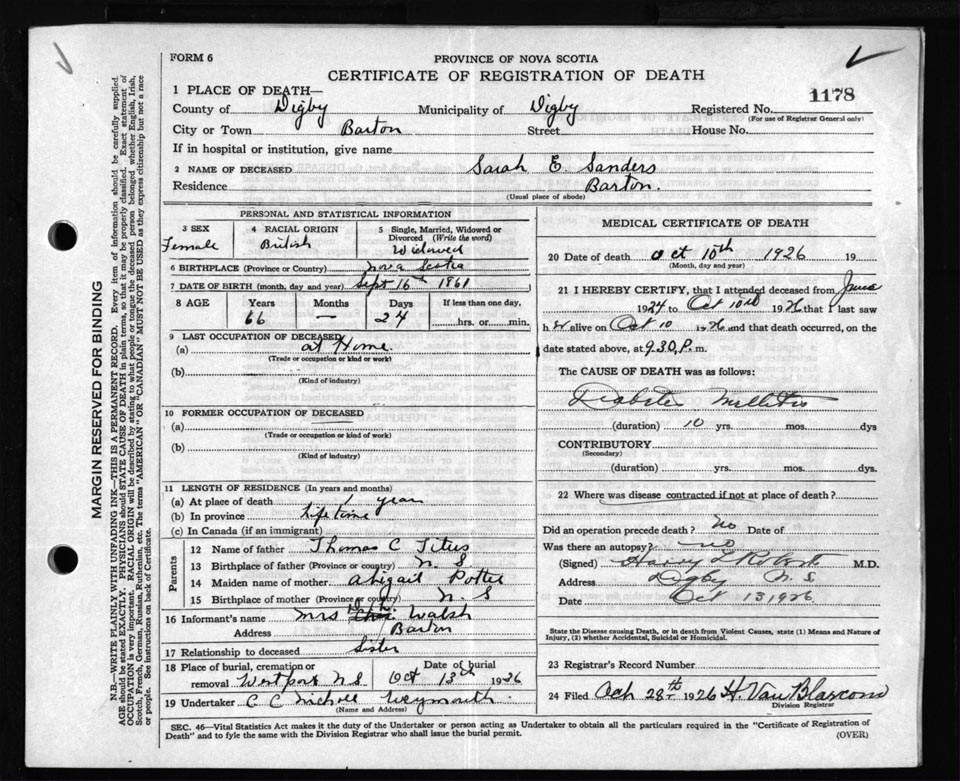 FORM 6
PROVINCE OF NOVA SCOTIA
CERTIFICATE OF REGISTRATION OF DEATH
1178
1 PLACE OF DEATH—
County of Digby Municipality of Digby Registered No.
(For use of Registrar General only)
City or Town Barton Street House No.
If in hospital or institution, give name
2 NAME OF DECEASED Sarah E. Sanders
Residence Barton.
(Usual place of abode)
PERSONAL AND STATISTICAL INFORMATION
3 SEX 4 RACIAL ORIGIN 5 Single, Married, Widowed or Divorced (Write the word)
Female British Widowed
6 BIRTHPLACE (Province or Country) Nova Scotia
7 DATE OF BIRTH (month, day, and year) Sept 16th 1861
8 AGE Years Months Days If less than one day,
66 — 24 hrs. or min.
9 LAST OCCUPATION OF DECEASED
(a) at Home
(Trade or occupation or kind of work)
(b)
(Kind of industry)
10 FORMER OCCUPATION OF DECEASED
(a)
(Trade or occupation or kind of work)
(b)
(Kind of industry)
11 LENGTH OF RESIDENCE (In years and months)
(a) At place of death 1 year
(b) In province life time
(c) In Canada (if an immigrant)
Parents
12 Name of father Thomas C Titus
13 Birthplace of father (Province or country) N. S
14 Maiden name of mother Abigail Potter
15 Birthplace of mother (Province or country) N. S
16 Informant's name Mrs Walsh
Address Barton
17 Relationship to deceased Sister
18 Place of burial, cremation or removal Westport N S Date of burial Oct 13th 1926
19 Undertaker C C Nicholl Weymouth
(Name and Address)
MEDICAL CERTIFICATE OF DEATH
20 Date of death Oct 10th 1926 19
(Month, day and year)
21 I HEREBY CERTIFY, that I attended deceased from June
1924 to Oct 10 1926 that I last saw
h er alive on Oct 10 1926 and that death occurred, on
date stated above, at 9.30 P. m.
The CAUSE OF DEATH was as follows:
Diabetes Mellitus
(duration) 10 yrs. mos. dys
CONTRIBUTORY
(Secondary)
(duration) yrs. mos. dys.
22 Where was disease contracted if not at place of death?
Did an operation precede death? No Date of
Was there an autopsy? no
(Signed) M.D.
Address Digby N. S.
Date Oct 13 1926
State the Disease causing Death, or in death from Violent Causes, state (1) Means and Nature of
Injury, (2) whether Accidental, Suicidal or Homicidal.
23 Registrar's Record Number
24 Filed 28th 1926 H. Van Blarcom
Division Registrar
SEC. 46—Vital Statistics Act makes it the duty of the Undertaker or person acting as Undertaker to obtain all the particulars required in the "Certificate of Registration of
Death" and to fyle the same with the Division Registrar who shall issue the burial permit. (OVER)
MARGIN RESERVED FOR BINDING
N.B.—WRITE PLAINLY, WITH UNFADING INK—THIS IS A PERMANENT RECORD. Every item of information should be carefully supplied.
AGE should be stated EXACTLY. PHYSICIANS should STATE CAUSE OF DEATH in plain terms, so that it may be properly classified. Exact statement of
OCCUPATION is very important. RACIAL ORIGIN will be described by stating to what people or tongue the deceased person belonged whether English, Irish,
Scotch, French, German, Russian, Ruthenian, etc. The terms "AMERICAN" OR "CANADIAN" MUST NOT BE USED as they express citizenship but not a race
or people. See instructions on back of Certificate.